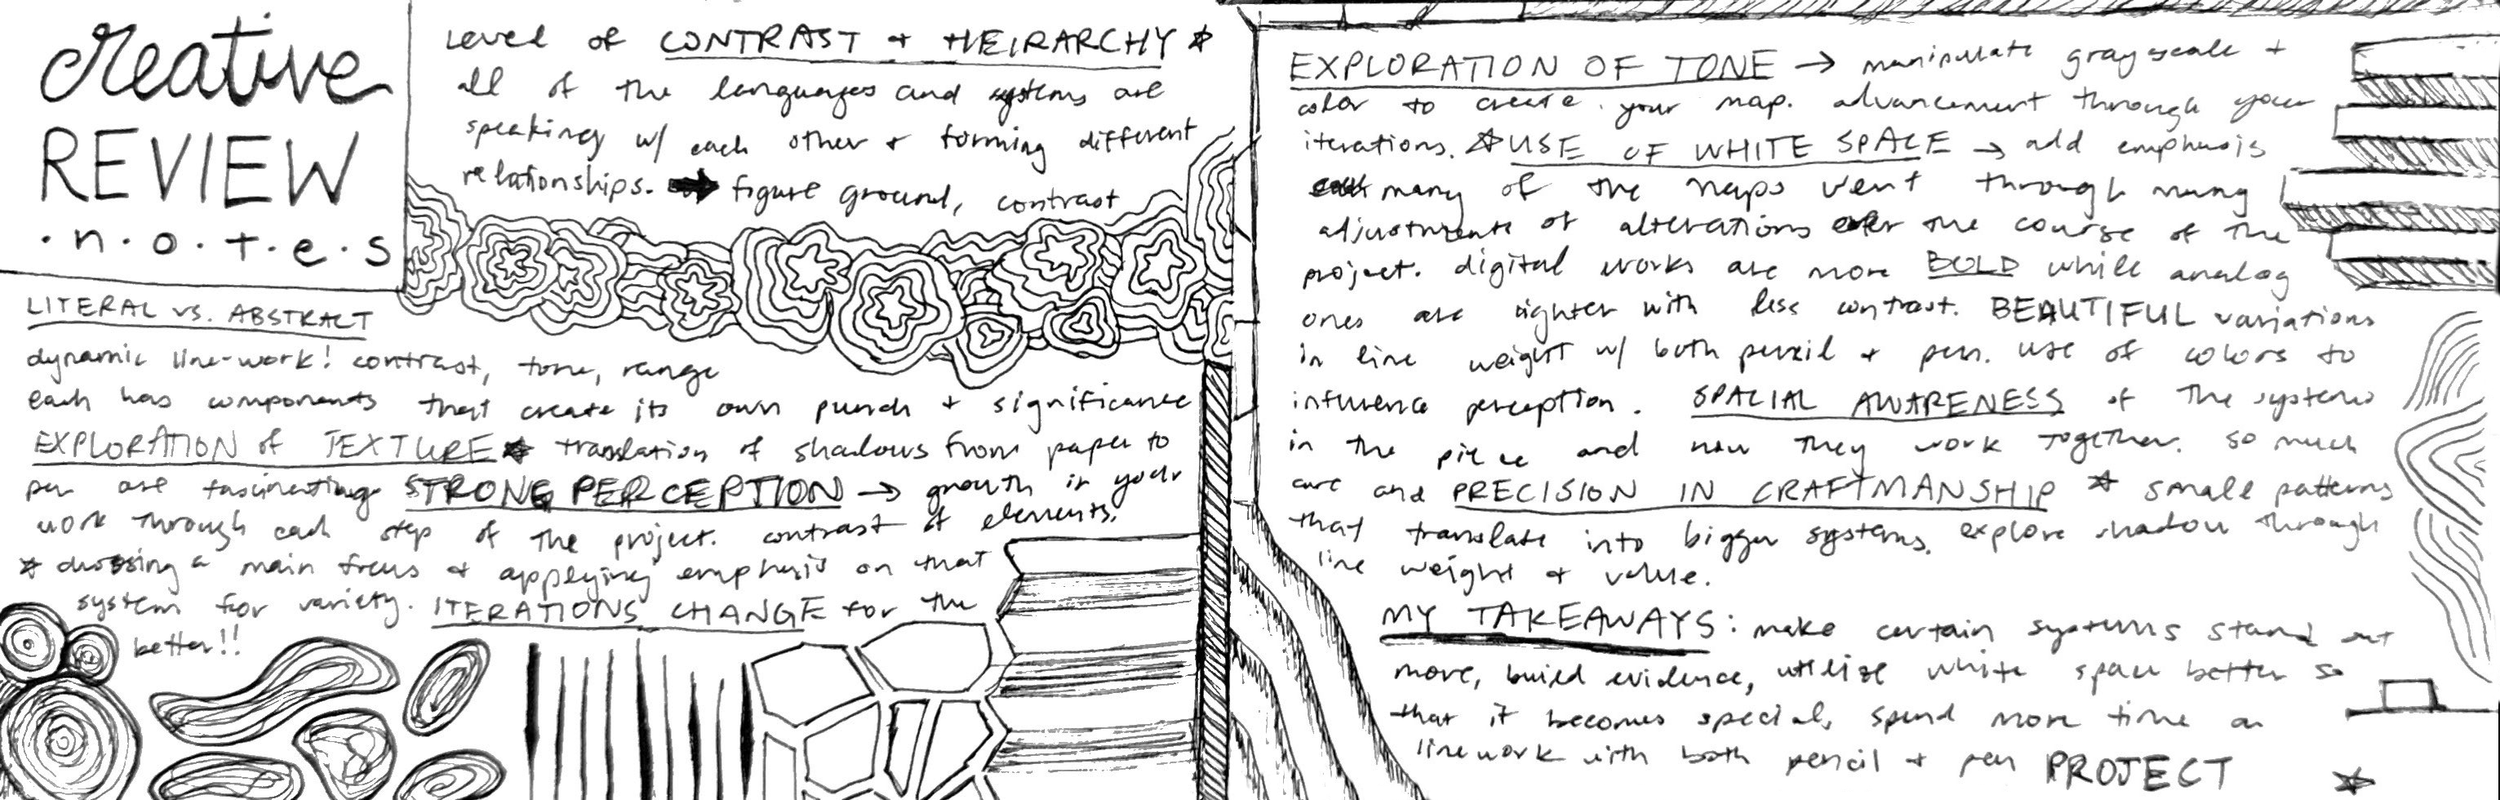 creative
REVIEW
.n.o.t.e.s
LITERAL vs. ABSTRACT
dynamic line-work! contrast, tone, range
each has components that create its own punch + significance
EXPLORATION of TEXTURE* translation of shadows from paper to
pen are fascinating STRONG PERCEPTION → growth in your
work through each step of the project. contrast of elements.
* choosing a main focus + applying emphasis on that
system for variety. ITERATIONS CHANGE for the
better!!
Level of CONTRAST + HEIRARCHY *
all of the languages and systems are
speaking w/ each other + forming different
relationships. → figure ground, contrast
EXPLORATION OF TONE → manipulate grayscale +
color to create your map. advancement through your
iterations. *USE OF WHITE SPACE → add emphasis
many of the maps went through many
adjustments of alterations over the course of the
project. digital works are more BOLD while analog
ones are lighter with less contrast. BEAUTIFUL variations
in line weight w/ both pencil + pen. use of colors to
influence perception. SPACIAL AWARENESS of the systems
in the piece and how they work together. so much
care and PRECISION IN CRAFTMANSHIP * small patterns
that translate into bigger systems. explore shadow through
line weight + value.
MY TAKEAWAYS: make certain systems stand out
more, build evidence, utilize white space better so
that it becomes special, spend more time on
linework with both pencil + pen PROJECT *